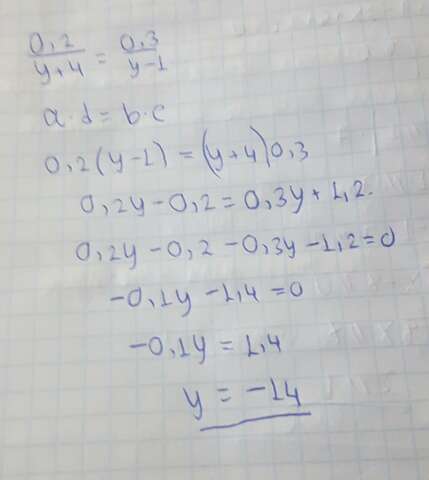 0,2/(y+4) = 0,3/(y-1)
a·d = b·c
0,2(y-1) = (y+4)0,3
0,2y - 0,2 = 0,3y + 1,2.
0,2y - 0,2 - 0,3y - 1,2 = 0
-0,1y - 1,4 = 0
-0,1y = 1,4
y = -14